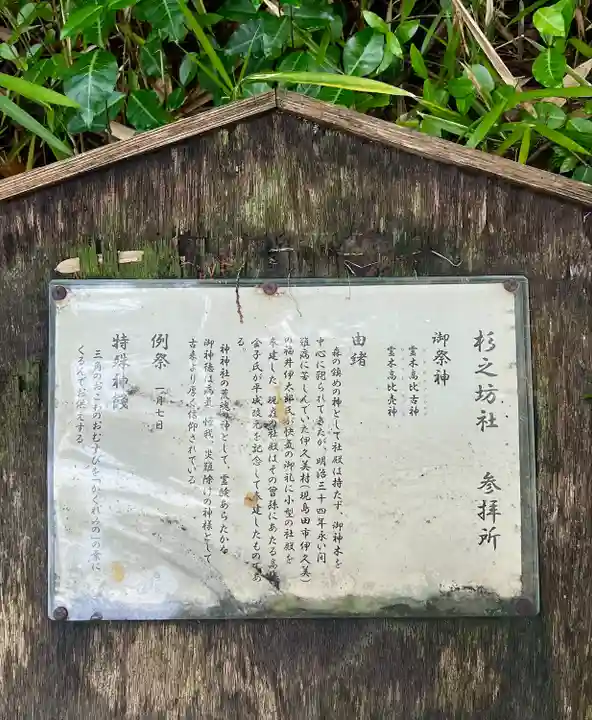 杉之坊社　参拝所
御祭神
霊木高比古神
霊木高比売神
由緒
森の鎮めの神として社殿は持たず、御神木を
中心に祀られてきたが、明治三十四年永い間
難病に苦しんでいた伊久美村(現島田市伊久美)
の福井伊太郎氏が快気の御礼に小型の社殿を
奉建した 現在の社殿はその曽孫にあたる高
金子氏が平成改元を記念して奉建したものであ
る。
神神社の荒魂神として、霊験あらたかな
御神徳は 怪我、災難除けの神様として
古来より厚く信仰されている
例祭　一月七日
特殊神饌
三角のおこわのおむすびを「かくれみの」の葉に
くるんでお供えする。